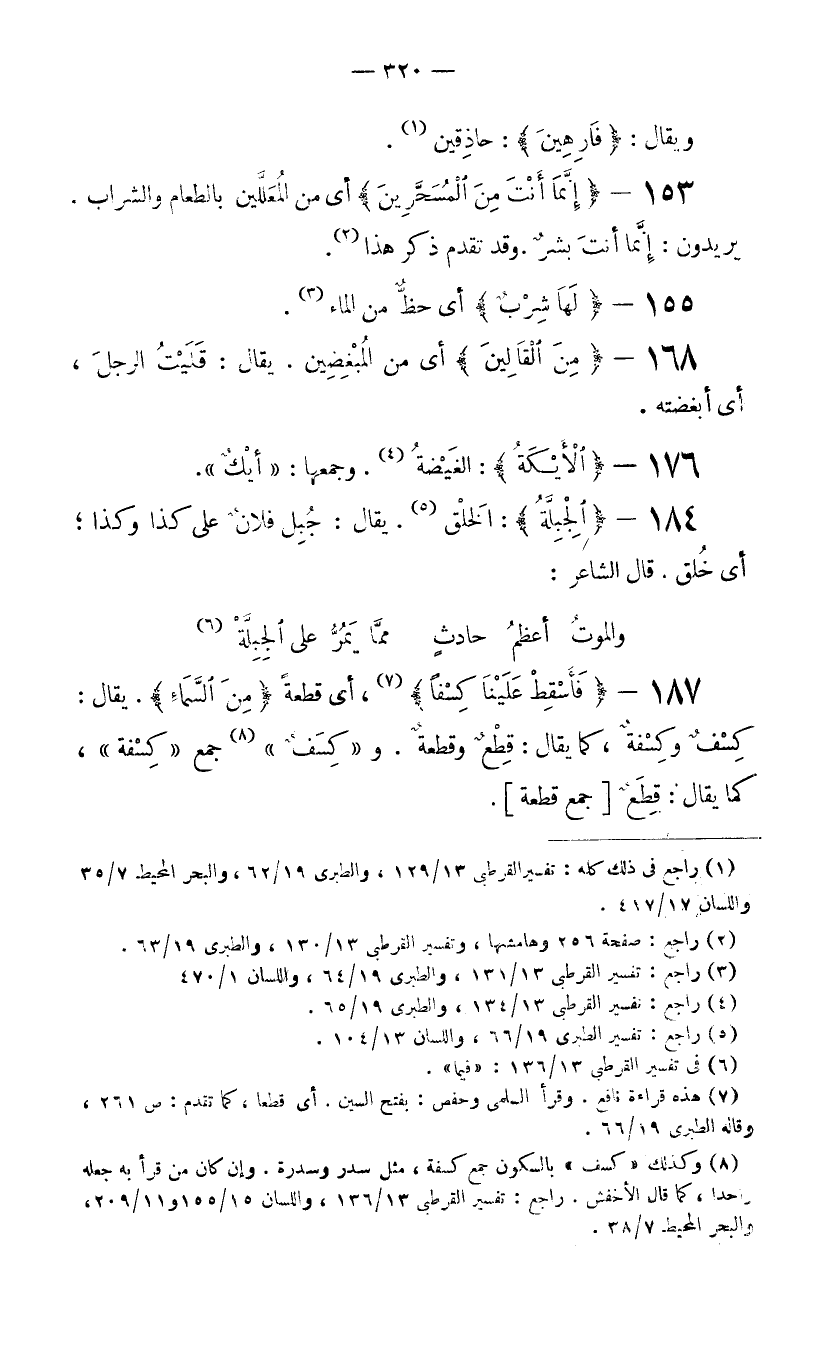 — ٣٢٠ —
ويقال : ﴿ فَارِهِينَ ﴾ : حاذِقِين (١) .
١٥٣ — ﴿ إِنَّمَا أَنْتَ مِنَ ٱلْمُسَحَّرِينَ ﴾ أى من المُعَلَّلين بالطعام والشراب .
يريدون : إنَّما أنتَ بشرٌ . وقد تقدم ذكر هذا (٢) .
١٥٥ — ﴿ لَهَا شِرْبٌ ﴾ أى حظٌّ من الماء (٣) .
١٦٨ — ﴿ مِنَ ٱلْقَالِينَ ﴾ أى من المُبْغِضِين . يقال : قَلَيْتُ الرجلَ ،
أى أبغضته .
١٧٦ — ﴿ ٱلْأَيْكَةُ ﴾ : الغَيْضةُ (٤) . وجمعها : « أيْكٌ » .
١٨٤ — ﴿ ٱلْجِبِلَّةُ ﴾ : الخلْق (٥) . يقال : جُبِل فلانٌ على كذا وكذا ؛
أى خُلق . قال الشاعر :
والموتُ أعظمُ حادثٍ ممَّا يَمُرُّ على ٱلجِبِلَّةْ (٦)
١٨٧ — ﴿ فَأَسْقِطْ عَلَيْنَا كِسْفًا ﴾ (٧) ، أى قطعةً ﴿ مِنَ ٱلسَّمَاءِ ﴾ . يقال :
كِسْفٌ وكِسْفةٌ ، كما يقال : قِطْعٌ وقطعةٌ . و « كِسَفٌ » (٨) جمع « كِسْفة » ،
كما يقال : قِطَعٌ [ جمع قطعة ] .
(١) راجع فى ذلك كله : تفسير القرطبى ١٢٩/١٣ ، والطبرى ٦٢/١٩ ، والبحر المحيط ٣٥/٧
واللسان ٤١٧/١٧ .
(٢) راجع : صفحة ٢٥٦ وهامشها ، وتفسير القرطبى ١٣٠/١٣ ، والطبرى ٦٣/١٩ .
(٣) راجع : تفسير القرطبى ١٣١/١٣ ، والطبرى ٦٤/١٩ ، واللسان ٤٧٠/١
(٤) راجع : تفسير القرطبى ١٣٤/١٣ ، والطبرى ٦٥/١٩ .
(٥) راجع : تفسير الطبرى ٦٦/١٩ ، واللسان ١٠٤/١٣ .
(٦) فى تفسير القرطبى ١٣٦/١٣ : «فيما» .
(٧) هذه قراءة نافع . وقرأ السلمى وحفص : بفتح السين . أى قطعا ، كما تقدم : ص ٢٦١ ،
وقاله الطبرى ٦٦/١٩ .
(٨) وكذلك « كسف » بالسكون جمع كسفة ، مثل سدر وسدرة . وإن كان من قرأ به جعله
واحدا ، كما قال الأخفش . راجع : تفسير القرطبى ١٣٦/١٣ ، واللسان ١٥٥/١٥ و٢٠٩/١١ ،
والبحر المحيط ٣٨/٧ .